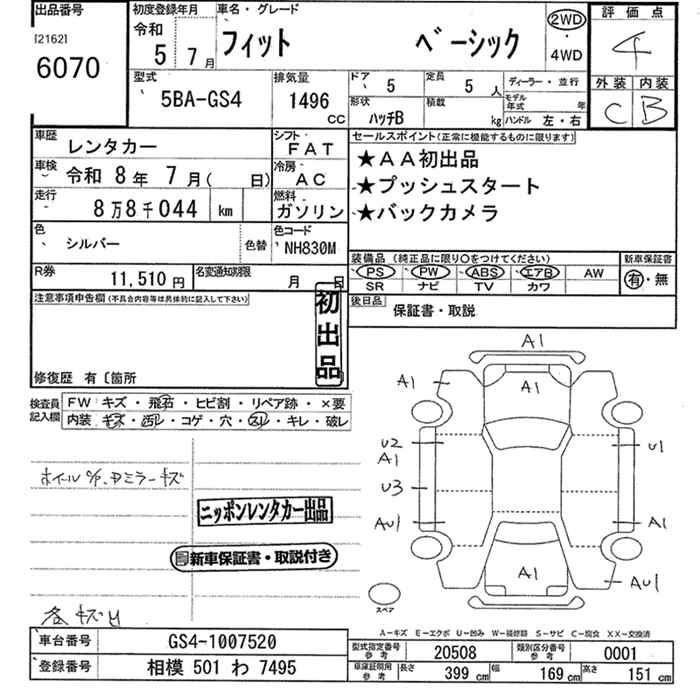 出品番号 初度登録年月 車名・グレード 2WD 評価点
[2162] 令和 4
6070 5 年 7 月 フィット ベーシック 4WD
型式 排気量 ドア 5 定員 5 人 ディーラー・並行 外装 内装
5BA-GS4 1496 CC 形状 ハッチB 積載 kg モデル年式 年 C B
ハンドル 左・右
車歴 レンタカー シフト FAT セールスポイント(正常に機能するものに限ります)
車検 令和 8 年 7 月( 日) 冷房 AC ★AA初出品
走行 8万8千044 km 燃料 ガソリン ★プッシュスタート
★バックカメラ
色 シルバー 色替 色コード NH830M
装備品 (純正品に限り〇をつけてください) 新車保証書
PS PW ABS エアB AW 有・無
SR ナビ TV カワ
R券 11,510 円 名変通知期限 月 日
後日品 保証書・取説
注意事項申告欄(不具合内容等は具体的に記入して下さい) 初出品
修復歴 有〔箇所
検査員記入欄 FW キズ・飛石・ヒビ割・リペア跡・×要
内装 キズ・汚レ・コゲ・穴・スレ・キレ・破レ
ニッポンレンタカー出品
新車保証書・取説付き
A1
A1 A1
U2 U1
A1
U3
AU1 A1
A1 AU1
スペア
A-キズ E-エクボ U-凹み W-補修跡 S-サビ C-腐食 XX-交換済
車台番号 GS4-1007520
登録番号 相模 501 わ 7495
型式指定番号 参考 20508 類別区分番号 参考 0001
車庫証明用 参考 長さ 399 cm 幅 169 cm 高さ 151 cm